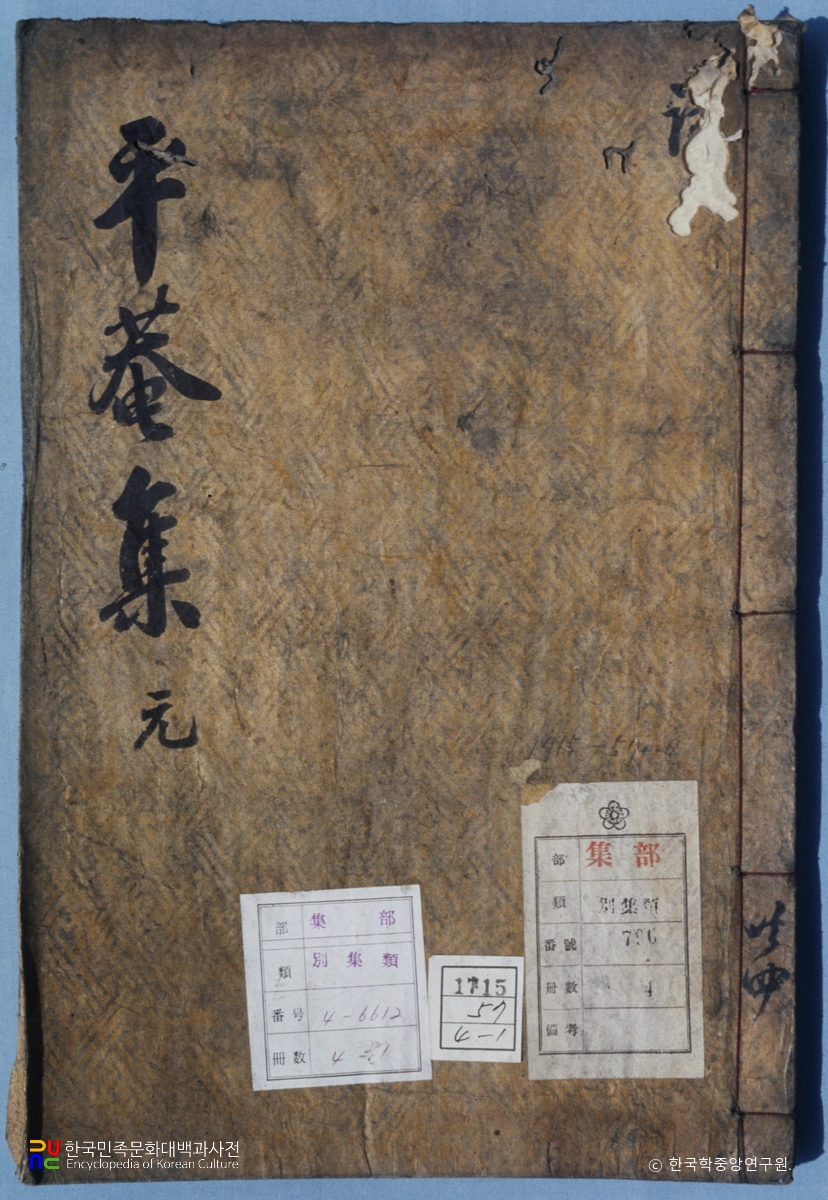 平菴集 元
共四
部 集部
類 別集類
番号 4-6612
冊數
1715
57
4-1
部 集部
類 別集類
番號 796
冊數 4
備考
한국민족문화대백과사전
Encyclopedia of Korean Culture
© 한국학중앙연구원.